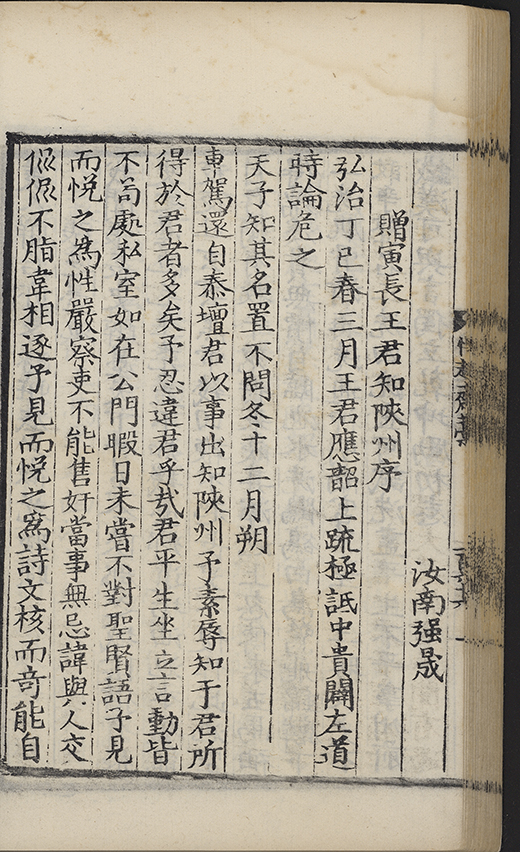 汝南强晟
贈寅長王君知陝州序
弘治丁巳春三月王君應韶上疏極詆中貴闢左道
時論危之
天子知其名置不問冬十二月朔
車駕還自泰壇君以事出知陝州予素辱知于君所
得於君者多矣予忍違君乎㢤君平生坐立言動皆
不苟處私室如在公門暇日未嘗不對聖賢語予見
而悦之為性嚴察吏不能售奸當事無忌諱與人交
侃侃不脂韋相逐予見而悦之為詩文核而竒能自